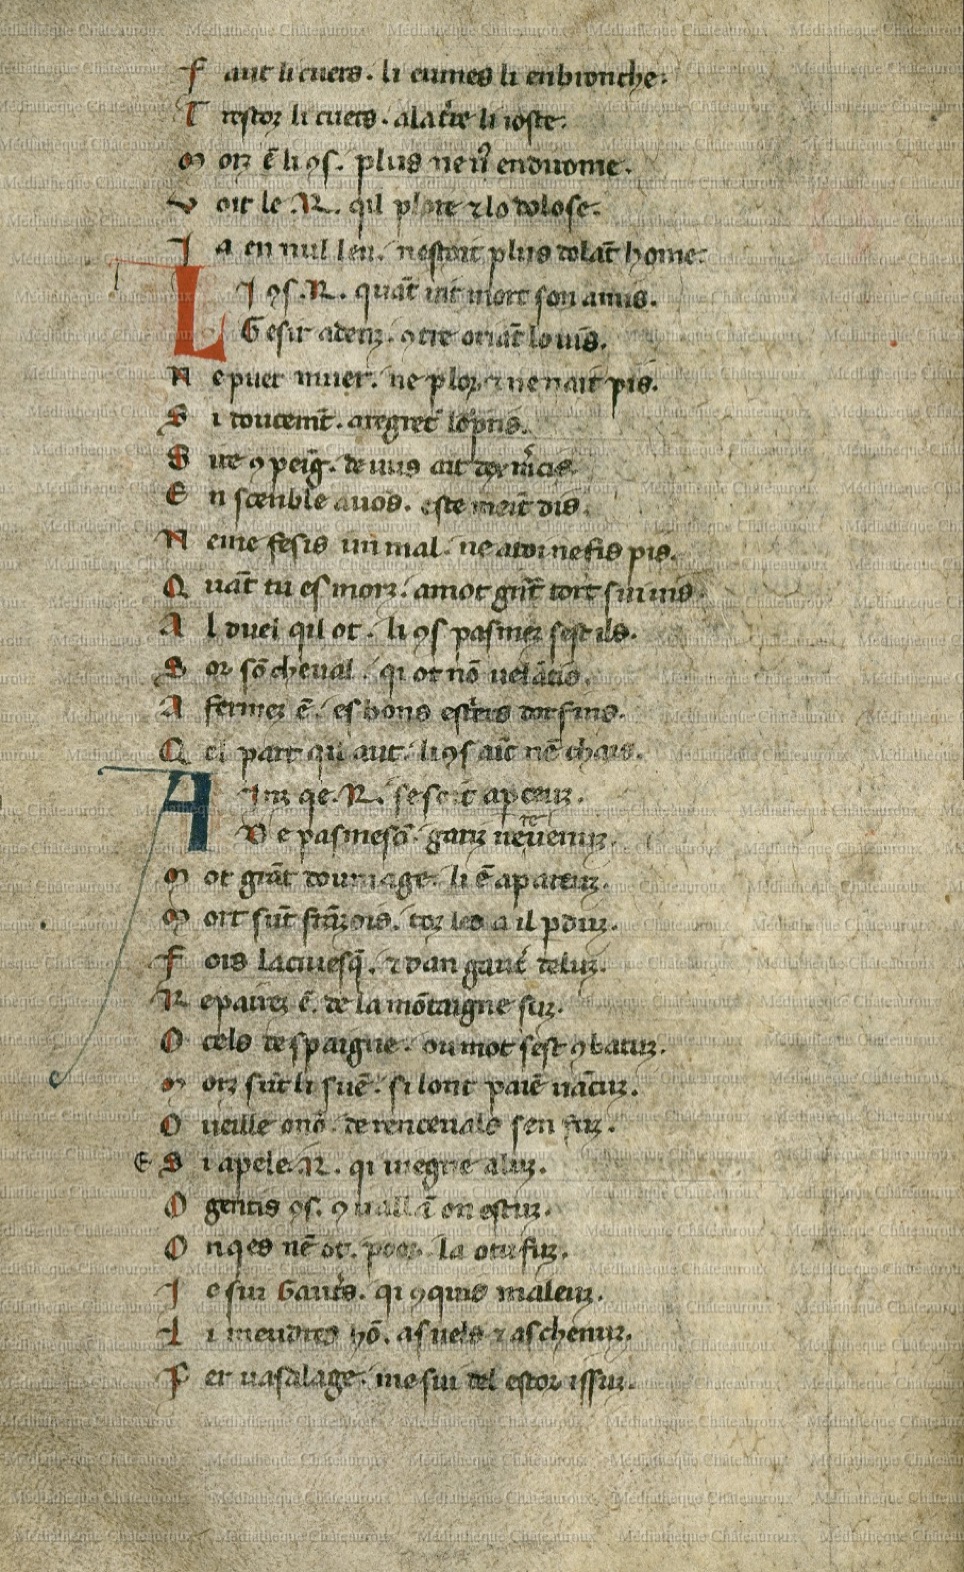 F aut li cuers . li eumes li enbronche .
T restoz li cuers . a la t̃re li ioste .
M orz ẽ li ꝯs . plus ne ñ en duome .
V oit le .R. qil plore ⁊ lo dolose .
J a en nul leu . nestoit plus dolãt home .
L I ꝯs .R. quãt uit mort son amis .
G esir adenz . ꝯtre oriãt lo uis .
N e puet muer . ne plor ⁊ ne nait pis .
S i doucemt̃ . a regreter
S ire ꝯpeig̃ . de uus ait
E n senble auos . este meĩt dis .
N e me fesis un mal . ne a toi ne fis pis .
Q uãt tu es morz . a mot grãt tort sui uis .
A l duel qil ot . li ꝯs pasmez sest
S or sõ cheual . qi ot nõ uelãtis .
A fermez ẽ . es bons estres dor fins .
Q el part qu aut . li ꝯs nẽ chais .
A Inz qe .R. se soit apceuz .
D e pasmesõ . gariz ne reuenuz .
M ot grãt doumage . li ẽ apareuz .
M ort sũt frãzois . toz les a il pduz .
F ors larciuesq̃ . ⁊ dan gautẽ deluz .
R epairez ẽ . de la mõtaigne suz .
O cels despaigne . ou mot sest ꝯbatuz .
M orz sũt li suẽ . si lont paiẽ uãcuz .
O ueille onõ . de renceuals sen fuiz .
E S i apele .R. qi
O gentis ꝯs . en estuz .
O nqes nẽ ot . poor la o tu fuz .
J e sui Gautrs . qi ꝯquis maleuz .
L i meudres hõ . as uels ⁊ as chenuz .
P er uasalage . me sui del estor issuz .